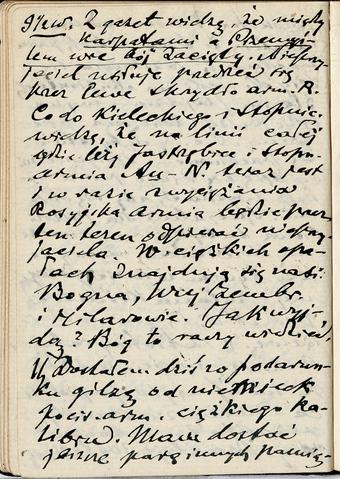 9/zw. Z gazet widzę, że między
Karpatami a Przemyś-
lem wre bój zacięty. Nieprzy-
jaciel usiłuje przedrzeć się
przez lewe skrzydło arm. R.
Co do Kieleckiego i Stopnic.
widzę, że na linii całej
gdzie leży Jastrzębiec i Stopn.
armia Au-N. teraz jest
i w razie zwyciężania
Rosyjska armia będzie przez
ten teren odpierać nieprzy-
jaciela. W ciężkich opa-
łach znajdują się nasi
Bogna, Wicz, Dzembr.
i Hilarowie. Jak wyj-
dą? Bóg to raczy wiedzieć.
Dostałem dziś w podarun-
ku gilzę od niemieck
pocis. arm. ciężkiego ka-
libru. Mam dostać
jeszcze parę innych pamią-